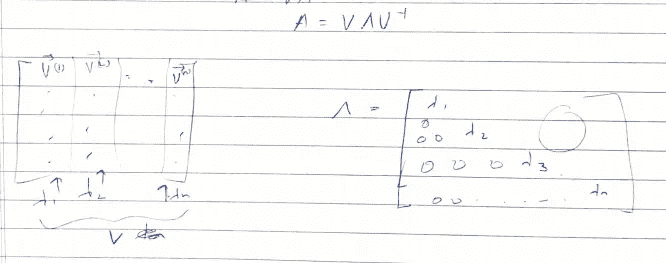 A = V Λ V⁻¹
V⃗⁽¹⁾ V⃗⁽²⁾ . . V⃗⁽ⁿ⁾
λ₁ λ₂ λn
V
Λ =
λ₁
0 0 0 λ₂
0 0 0 λ₃
0 0 . . . . - . λn